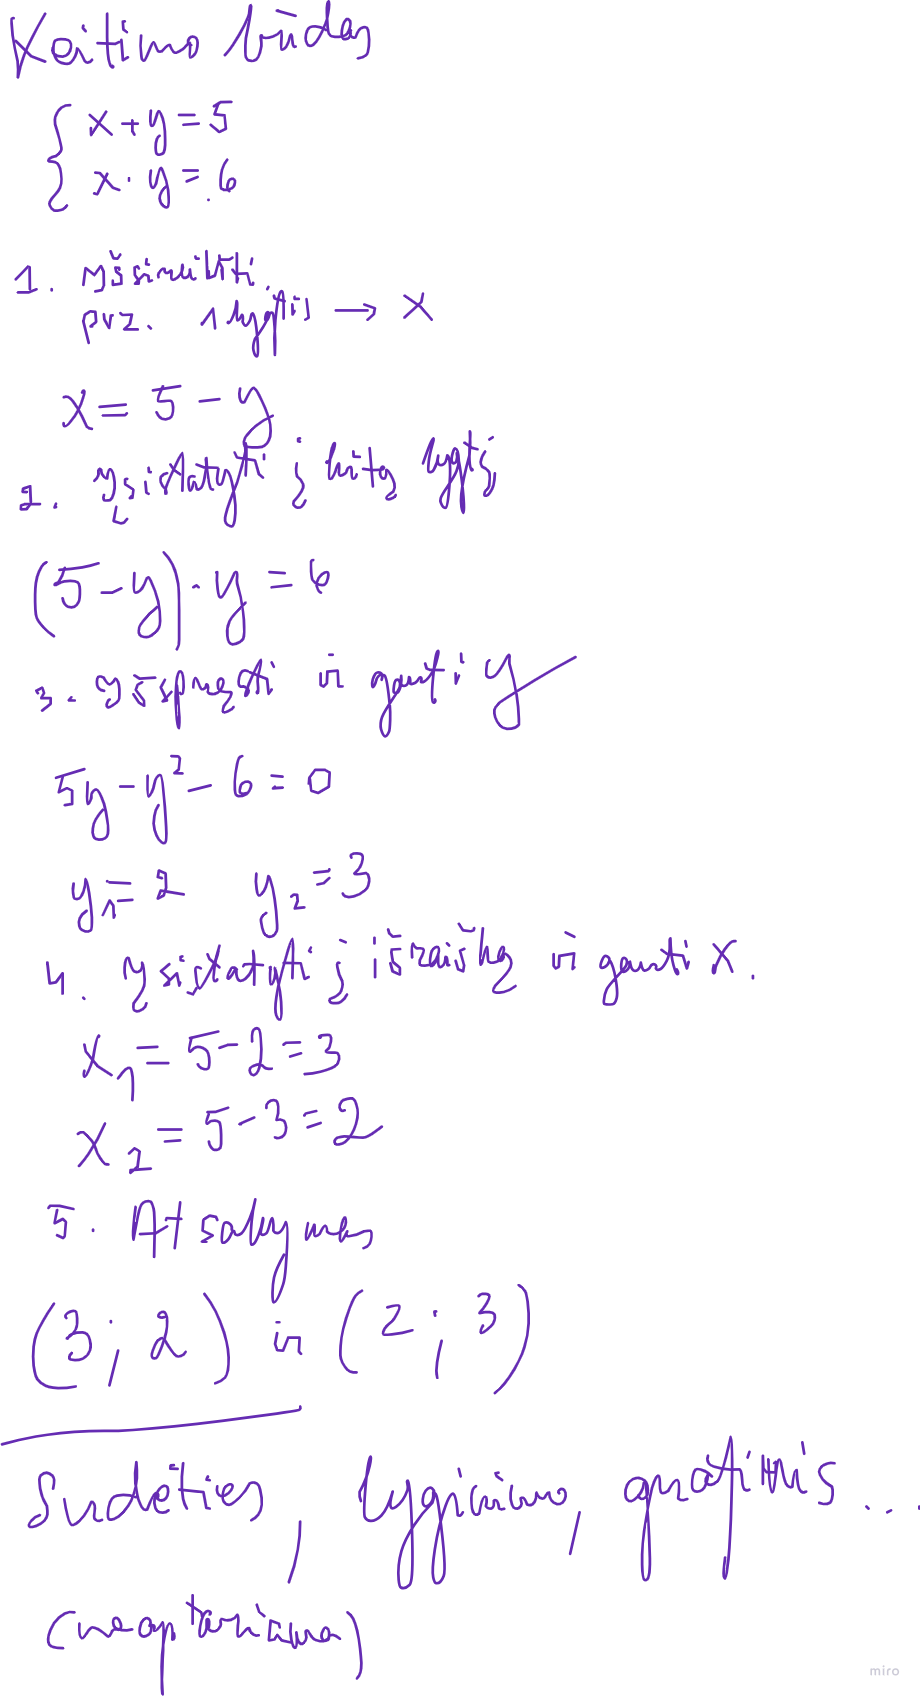 Keitimo būdas
x + y = 5
x · y = 6
1. Išsireikšti
pvz. 1 lygtis → x
x = 5 - y
2. Įsistatyti į kitą lygtį
(5 - y) · y = 6
3. Išspręsti ir gauti y
5y - y² - 6 = 0
y₁ = 2 y₂ = 3
4. Įsistatyti į išraišką ir gauti x.
x₁ = 5 - 2 = 3
x₂ = 5 - 3 = 2
5. Atsakymas
(3 ; 2) ir (2 ; 3)
Sudėties, lyginimo, grafinis ...
(neaptariama)
miro